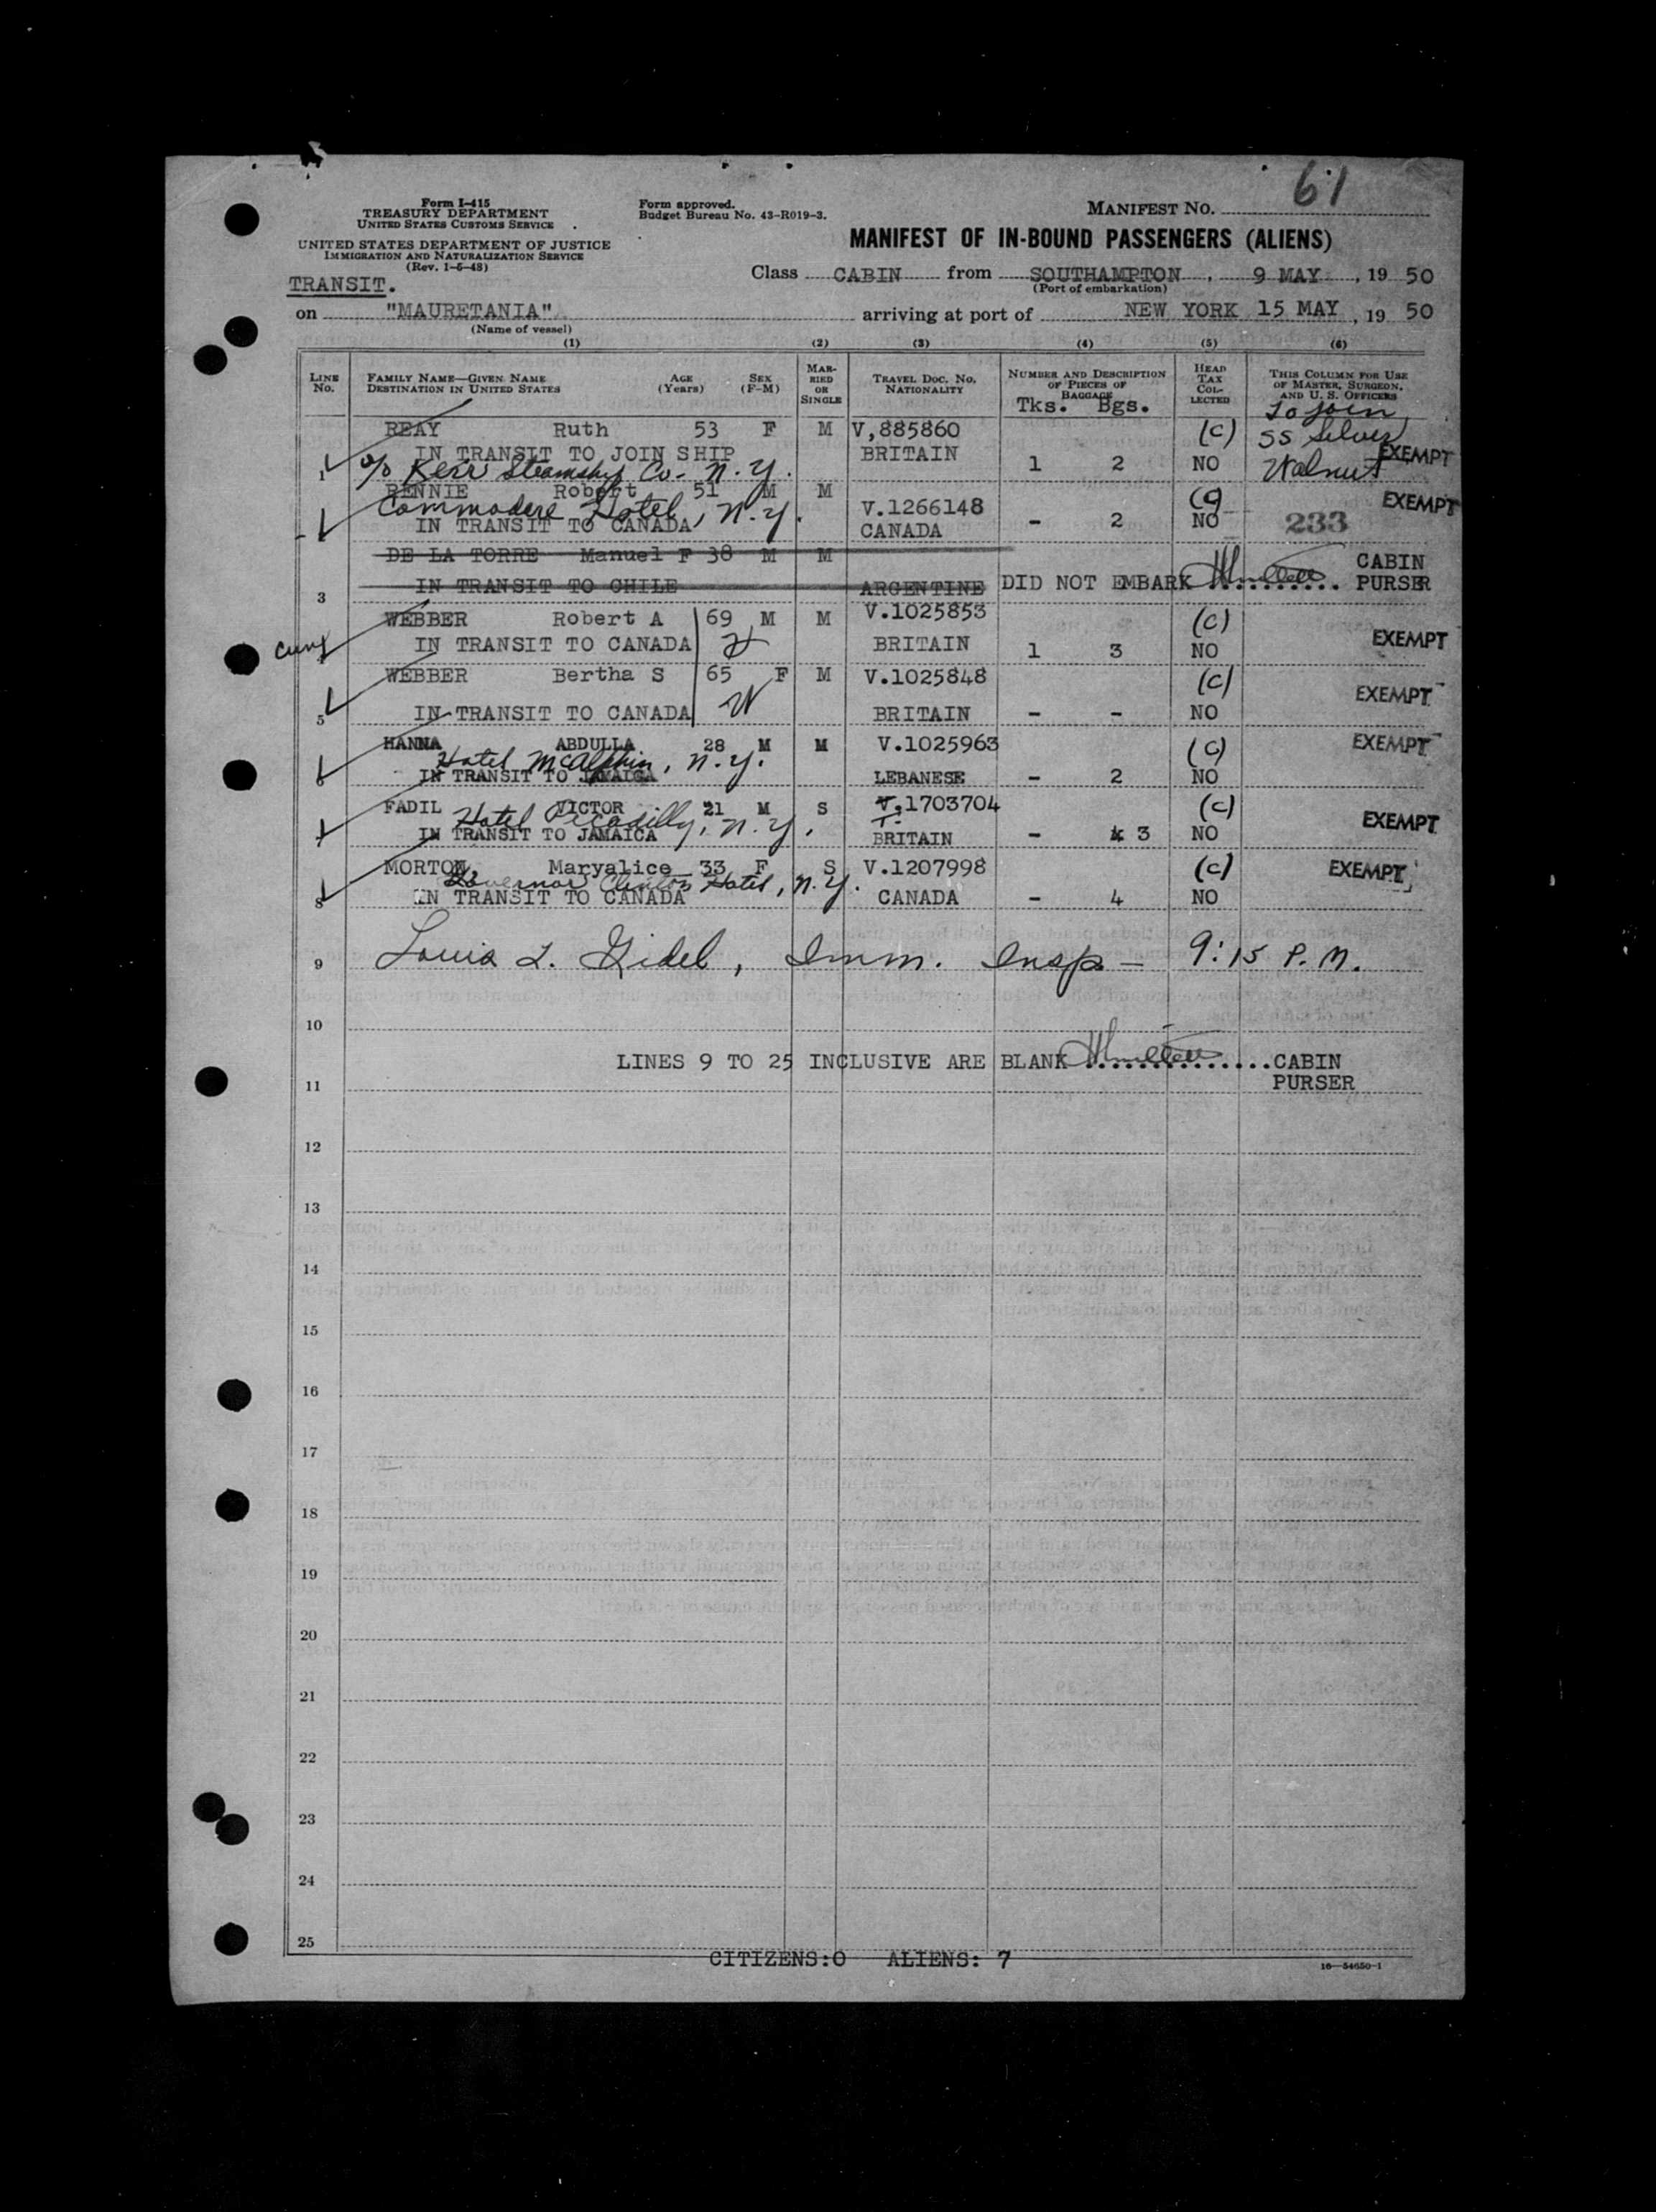 Form I-415
TREASURY DEPARTMENT
UNITED STATES CUSTOMS SERVICE
UNITED STATES DEPARTMENT OF JUSTICE
IMMIGRATION AND NATURALIZATION SERVICE
(Rev. 1-6-48)
Form approved.
Budget Bureau No. 43-R019-3.
MANIFEST NO. 61
MANIFEST OF IN-BOUND PASSENGERS (ALIENS)
TRANSIT.
Class CABIN from SOUTHAMPTON, 9 MAY, 19 50
(Port of embarkation)
on "MAURETANIA" arriving at port of NEW YORK 15 MAY, 19 50
(Name of vessel)
(1) (2) (3) (4) (5) (6)
LINE NO. FAMILY NAME—GIVEN NAME DESTINATION IN UNITED STATES AGE (Years) SEX (F-M) MARRIED OR SINGLE TRAVEL DOC. NO. NATIONALITY NUMBER AND DESCRIPTION OF PIECES OF BAGGAGE Tks. Bgs. HEAD TAX COLLECTED THIS COLUMN FOR USE OF MASTER, SURGEON, AND U. S. OFFICERS
To join
REAY Ruth 53 F M V,885860 (c) SS Silver
IN TRANSIT TO JOIN SHIP BRITAIN EXEMPT
1 c/o Kerr Steamship Co. N.Y. 1 2 NO Walnut
RENNIE Robert 51 M M V.1266148 (c) EXEMPT
Commodore Hotel, N.Y.
IN TRANSIT TO CANADA CANADA - 2 NO 233
DE LA TORRE Manuel F 38 M M CABIN
IN TRANSIT TO CHILE ARGENTINE DID NOT EMBARK .......... PURSER
3
WEBBER Robert A 69 M M V.1025853 (c)
IN TRANSIT TO CANADA BRITAIN 1 3 NO EXEMPT
WEBBER Bertha S 65 F M V.1025848 (c) EXEMPT
5 IN TRANSIT TO CANADA BRITAIN - - NO
HANNA ABDULLA 28 M M V.1025963 (c) EXEMPT
Hotel McAlpin, N.Y.
6 IN TRANSIT TO JAMAICA LEBANESE - 2 NO
FADIL VICTOR 21 M S V.1703704 (c) EXEMPT
Hotel Piccadilly, N.Y.
IN TRANSIT TO JAMAICA BRITAIN - 3 NO
MORTON, Maryalice 33 F S V.1207998 (c) EXEMPT
Governor Clinton Hotel, N.Y.
8 IN TRANSIT TO CANADA CANADA - 4 NO
9 Louis L. Gidel, Imm. Insp — 9:15 P.M.
10
LINES 9 TO 25 INCLUSIVE ARE BLANK ..............CABIN
11 PURSER
12
13
14
15
16
17
18
19
20
21
22
23
24
25
CITIZENS:0 ALIENS: 7
16—54650-1